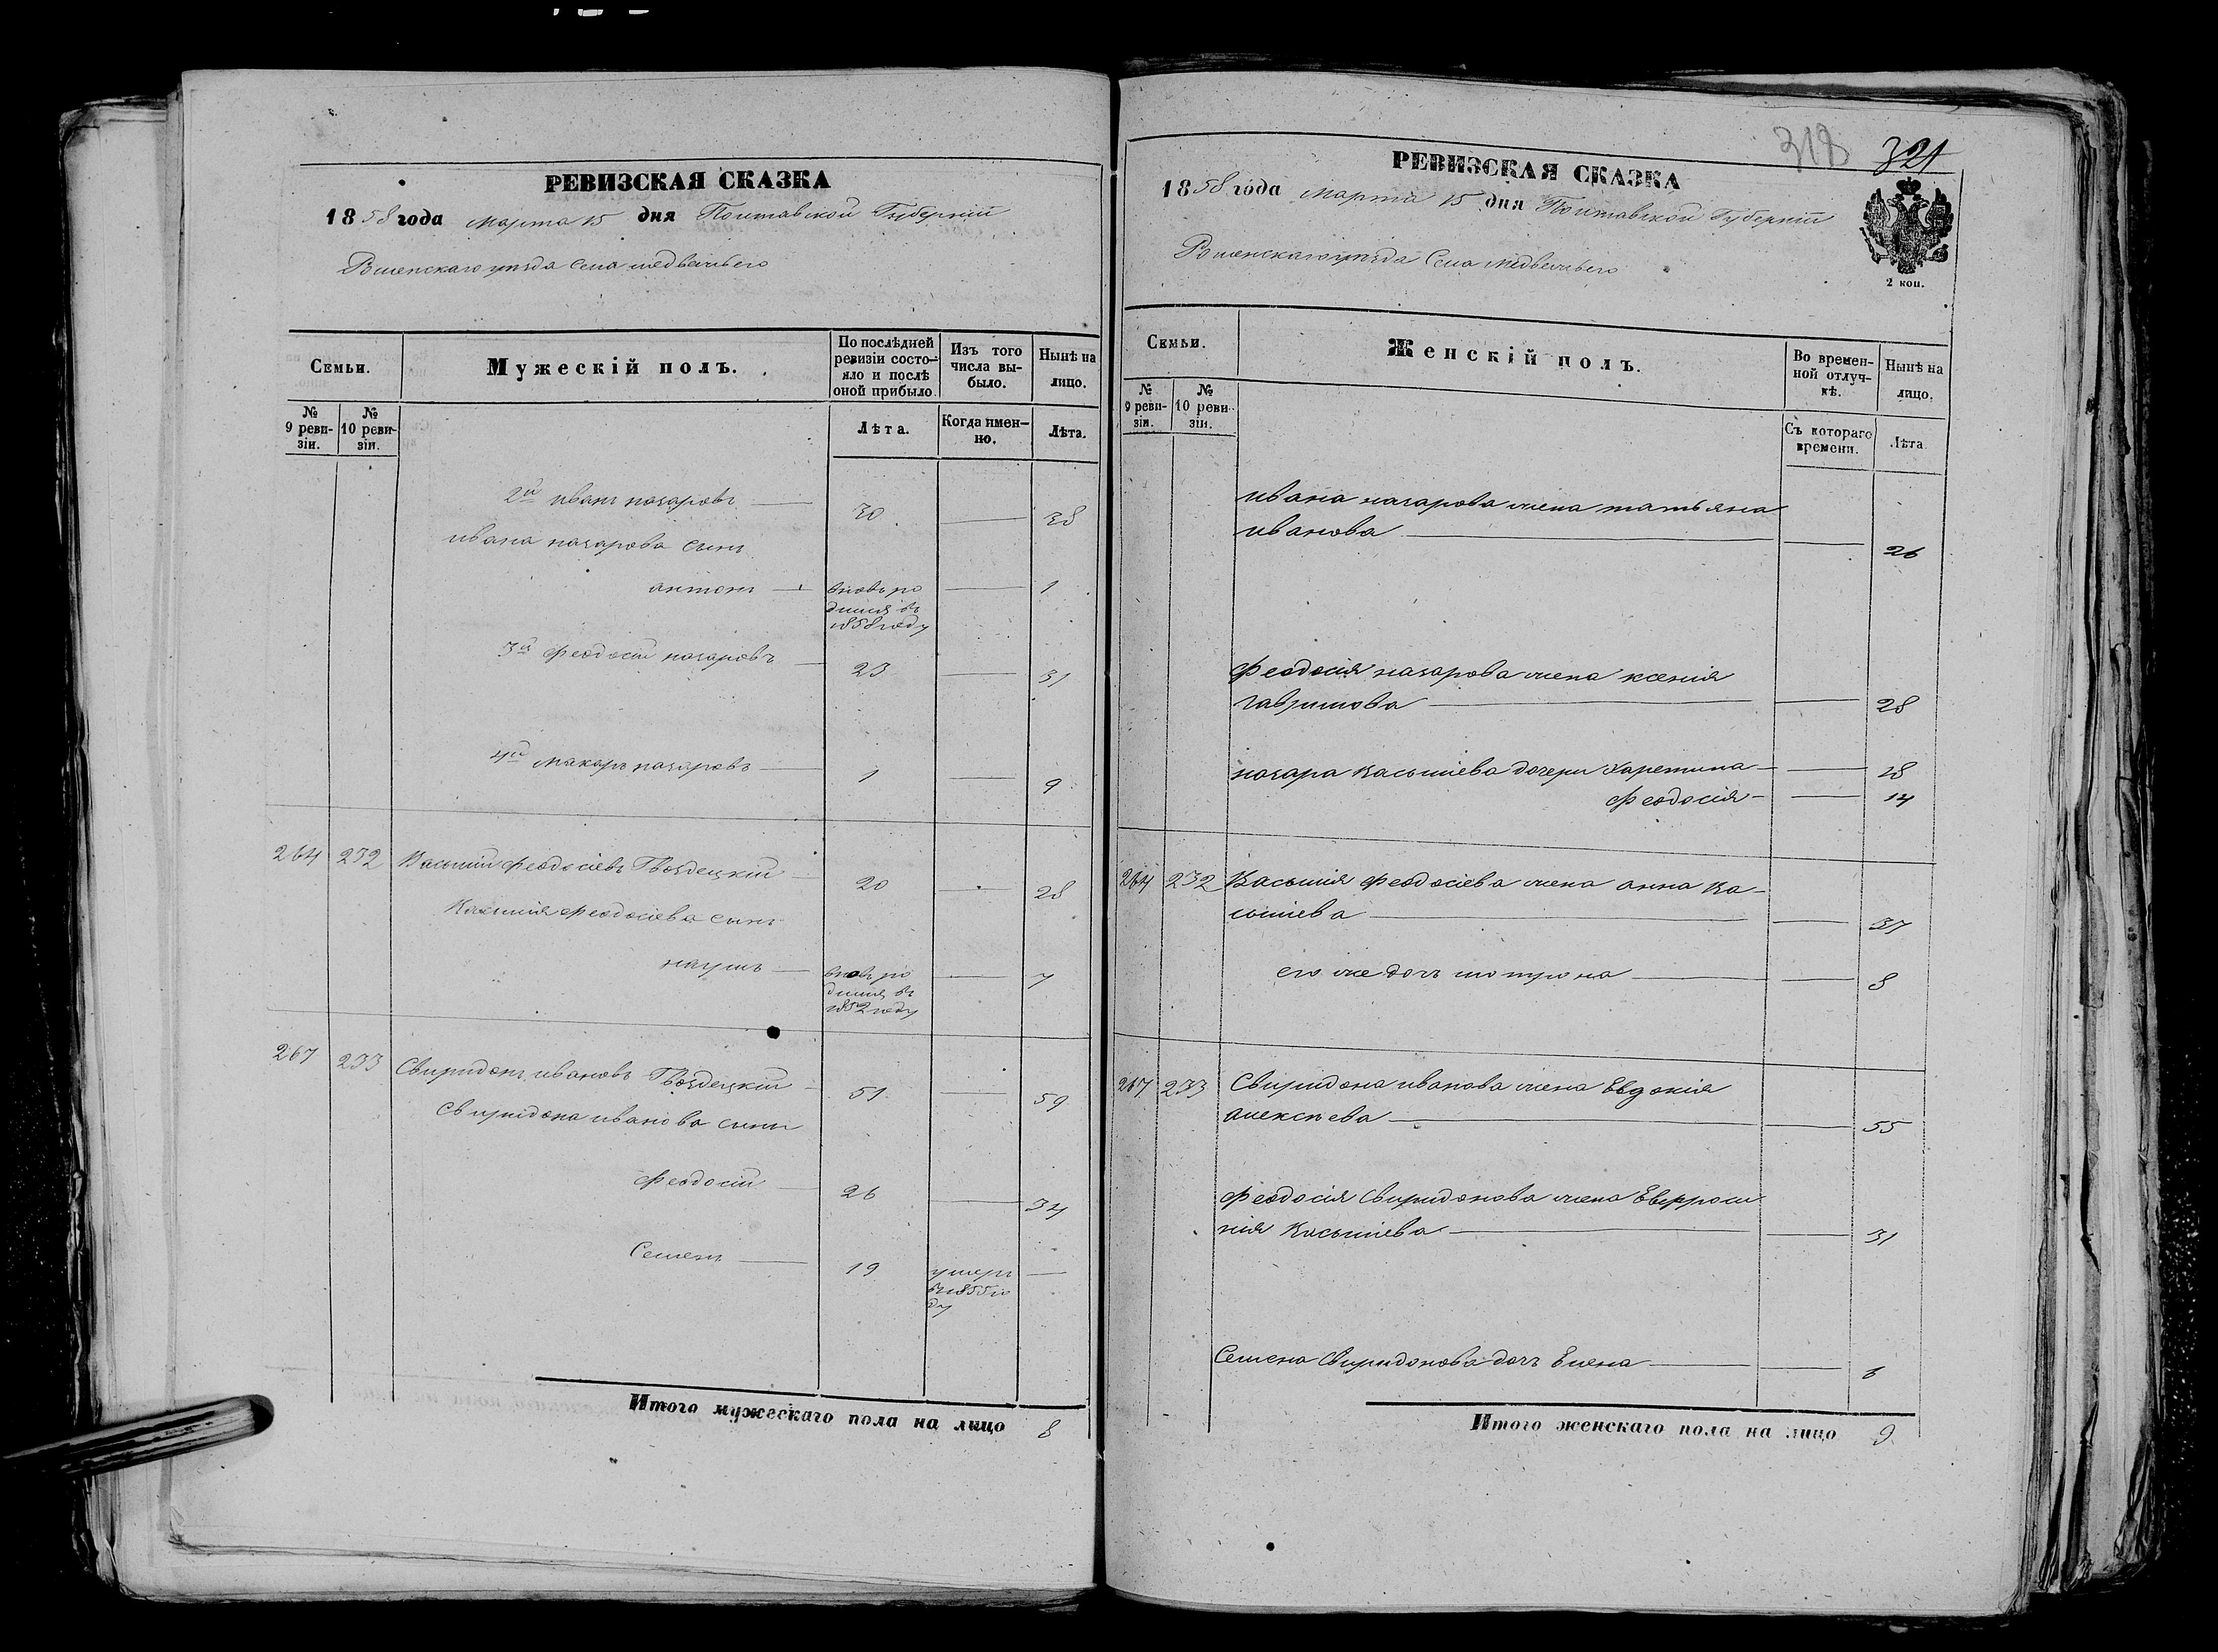 РЕВИЗСКАЯ СКАЗКА
1858 года марта 15 дня Полтавской Губерніи
Роменскаго уѣзда Села медвежьего
Семьи.
Мужескій полъ.
По послѣдней ревизіи состояло и послѣ оной прибыло.
Изъ того числа выбыло.
Нынѣ на лицо.
№ 9 ревизіи.
№ 10 ревизіи.
Лѣта.
Когда именно.
Лѣта.
2й иванъ назаровъ — 30 — 38
ивана назарова сынъ
антонъ — вновь родился въ 1858 году — 1
3й феодосій назаровъ — 23 — 31
4й макаръ назаровъ — 1 — 9
264 232 Касьянъ феодосіевъ Гвоздецкій — 20 — 28
феодосіева сынъ
наумъ — вновь родился въ 1852 году — 7
267 233 Свиридонъ ивановъ Гвоздецкій — 51 — 59
Свиридона иванова сыны
феодосій — 26 — 34
Семенъ — 19 умеръ въ 1855 году —
Итого мужескаго пола на лицо 8
318 321
РЕВИЗСКАЯ СКАЗКА
1858 года марта 15 дня Полтавской Губерніи
Роменскаго уѣзда Села медвежьего
2 коп.
Семьи.
Женскій полъ.
Во временной отлучкѣ.
Нынѣ на лицо.
№ 9 ревизіи.
№ 10 ревизіи.
Съ котораго времени.
Лѣта.
ивана назарова жена татьяна
иванова — — 26
феодосія назарова жена ксенія
гаврилова — — 28
назара дочери харетина — — 18
феодосія — — 14
264 232 феодосіева жена анна
— — 37
его же дочь мотрона — — 8
267 233 Свиридона иванова жена Евдокія
алексѣева — — 55
феодосія Свиридонова жена Евфроси
нія — — 31
Семена Свиридонова дочь Елена — — 6
Итого женскаго пола на лицо 9